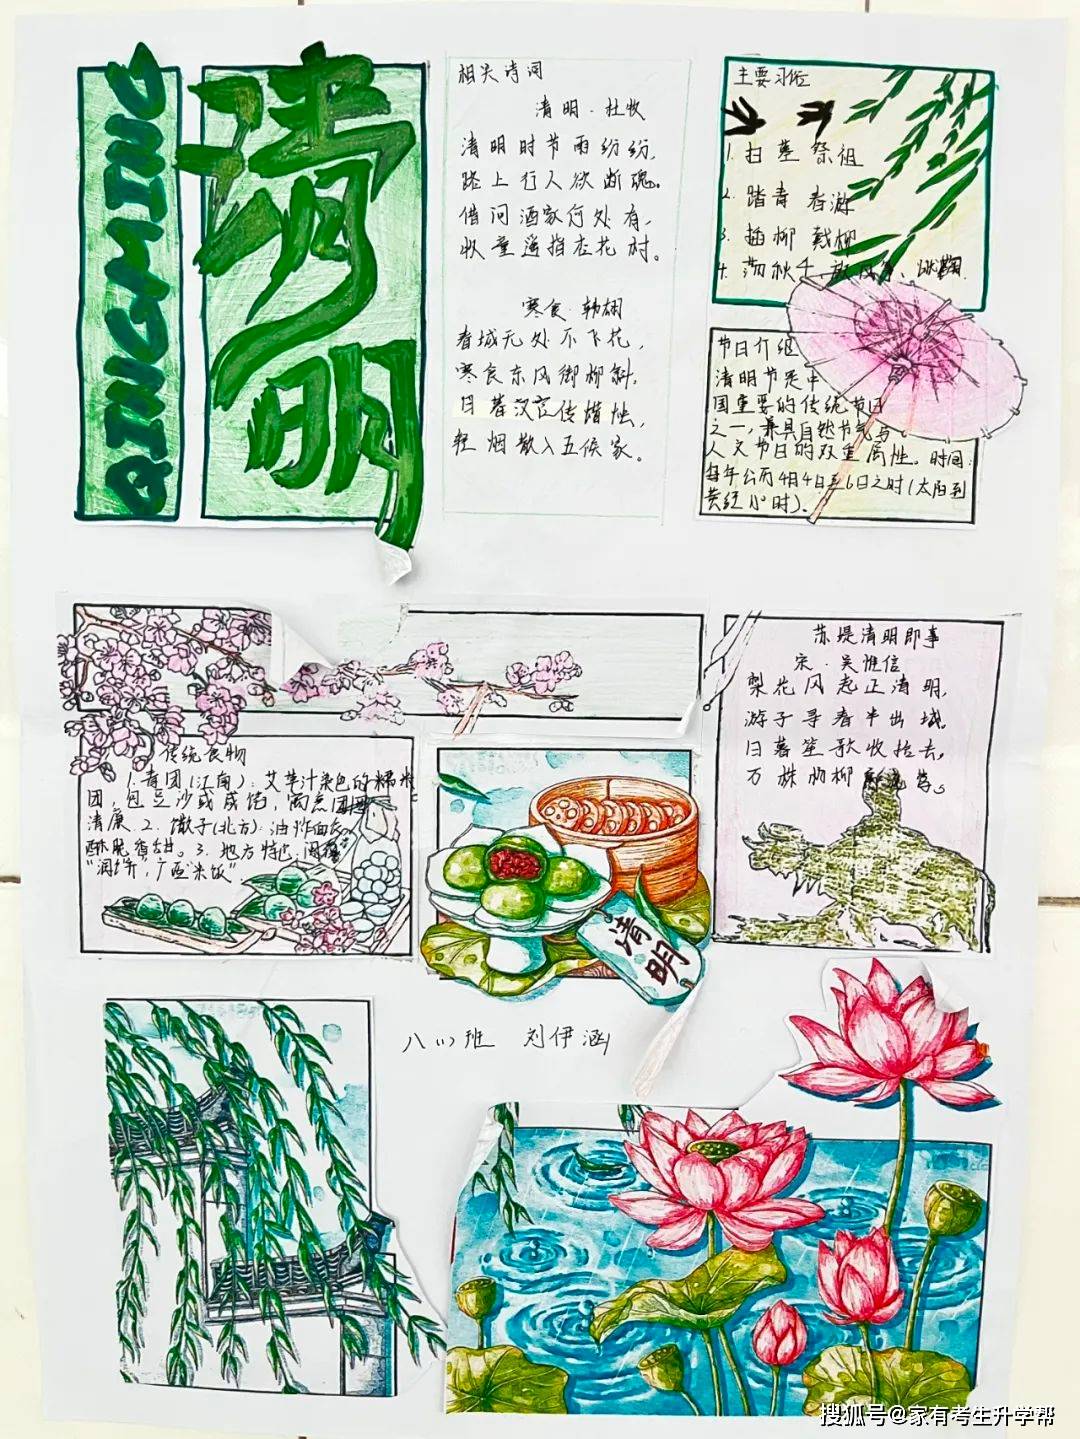 QINGMING
清明
相关诗词
清明·杜牧
清明时节雨纷纷,
路上行人欲断魂。
借问酒家何处有,
牧童遥指杏花村。
寒食·韩翃
春城无处不飞花,
寒食东风御柳斜,
日暮汉宫传蜡烛,
轻烟散入五侯家。
主要习俗
1. 扫墓祭祖
2. 踏青 春游
3. 插柳 戴柳
4. 荡秋千、放风筝、蹴鞠.
节日介绍
清明节是中
国重要的传统节日
之一,兼具自然节气与
人文节日的双重属性。时间:
每年公历4月4日至6日之时(太阳到
黄经 小时)。
苏堤清明即事
宋·吴惟信
梨花风起正清明,
游子寻春半出城。
日暮笙歌收拾去,
万株杨柳
传统食物
1.青团(江南):艾草汁染色的糯米
团,包豆沙或咸馅,寓意团圆
清廉.2.馓子(北方):油炸面食
酥脆香甜。3.地方特色:闽
"润饼",广西"米饭".
清明
八(1)班 刘伊涵
搜狐号@家有考生升学帮